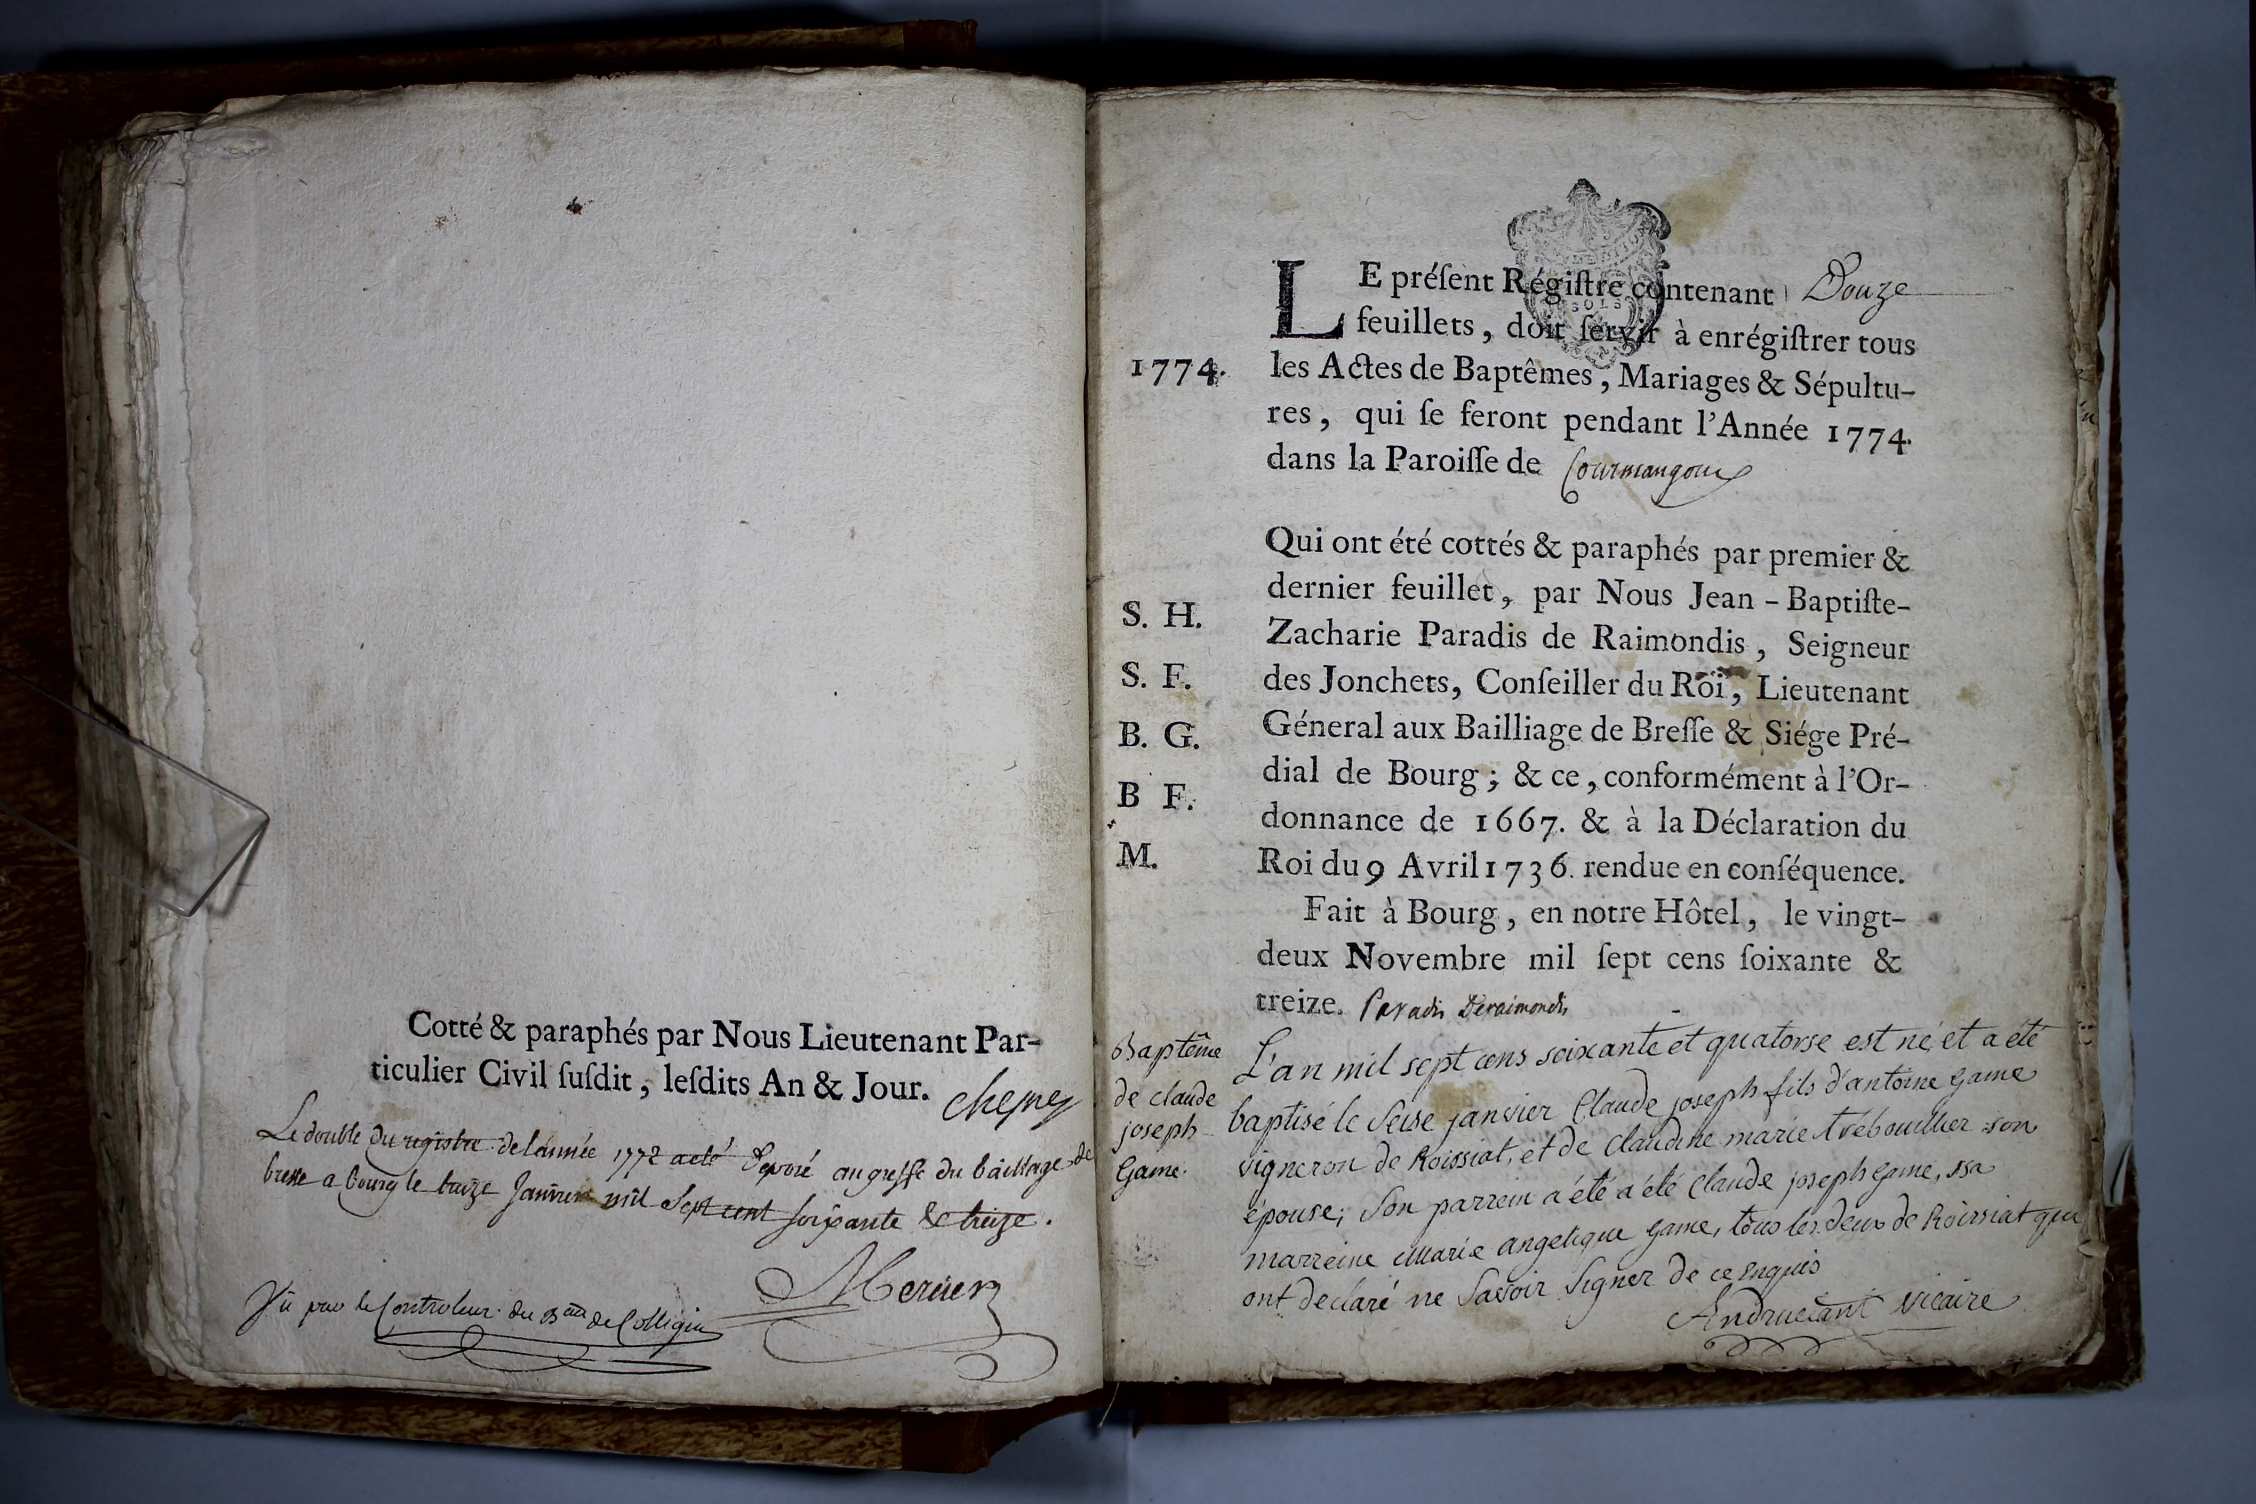 Cotté & paraphés par Nous Lieutenant Par-
ticulier Civil ſuſdit, leſdits An & Jour.
Le double du registre de l'année 1772 a été déposé au greffe du bailliage de
bresse a bourg le treize Janvier mil sept cent soixante & treize.
Mercier
Vû par le Controleur du B.au de Colligni
1774.
LE préſent Régiſtre contenant Douze
feuillets, doit ſervir à enrégiſtrer tous
les Actes de Baptêmes, Mariages & Sépultu-
res, qui ſe feront pendant l'Année 1774.
dans la Paroiſſe de Courmangoux
Qui ont été cottés & paraphés par premier &
dernier feuillet, par Nous Jean-Baptiſte-
Zacharie Paradis de Raimondis, Seigneur
des Jonchets, Conſeiller du Roi, Lieutenant
Géneral aux Bailliage de Breſſe & Siége Pré-
dial de Bourg; & ce, conformément à l'Or-
donnance de 1667. & à la Déclaration du
Roi du 9 Avril 1736. rendue en conſéquence.
Fait à Bourg, en notre Hôtel, le vingt-
deux Novembre mil ſept cens ſoixante &
treize. Paradis Deraimondis
S. H.
S. F.
B. G.
B F.
M.
Baptême
de claude
joseph
Game.
L'an mil sept cens soixante et quatorse est né et a été
baptisé le seise janvier Claude joseph fils d'antoine Game
vigneron de Roissiat, et de claudine marie trébouillier son
épouse; son parrein a été a été Claude joseph Game, ssa
marreine marie angelique Game, tous les deux de Roissiat qui
ont déclaré ne savoir signer de ce enquis
vicaire